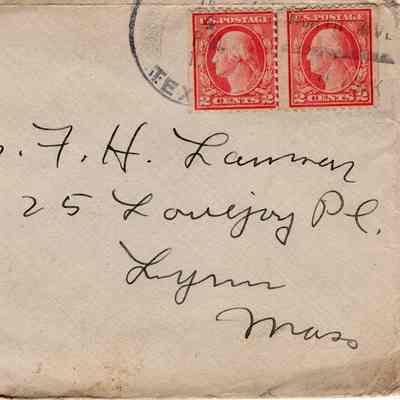 U.S. POSTAGE U.S. POSTAGE
2 CENTS 2 2 CENTS 2
TEX
F. H.
25 Lovejoy Pl.
Lynn
Mass